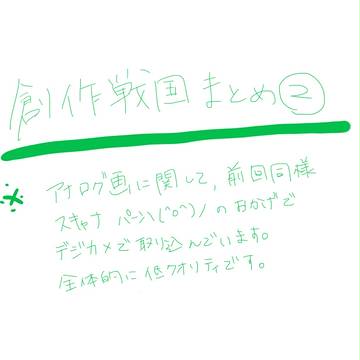 創作戦国まとめ②
※ アナログ画に関して、前回同様
スキャナ パーン\(^o^)/ のおかげで
デジカメで取り込んでいます。
全体的に低クオリティです。